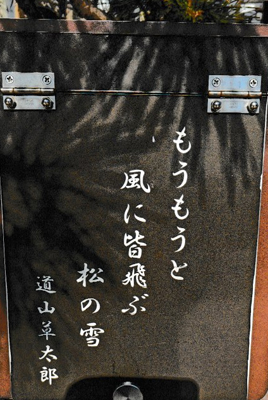 もうもうと
風に皆飛ぶ
松の雪
道山草太郎